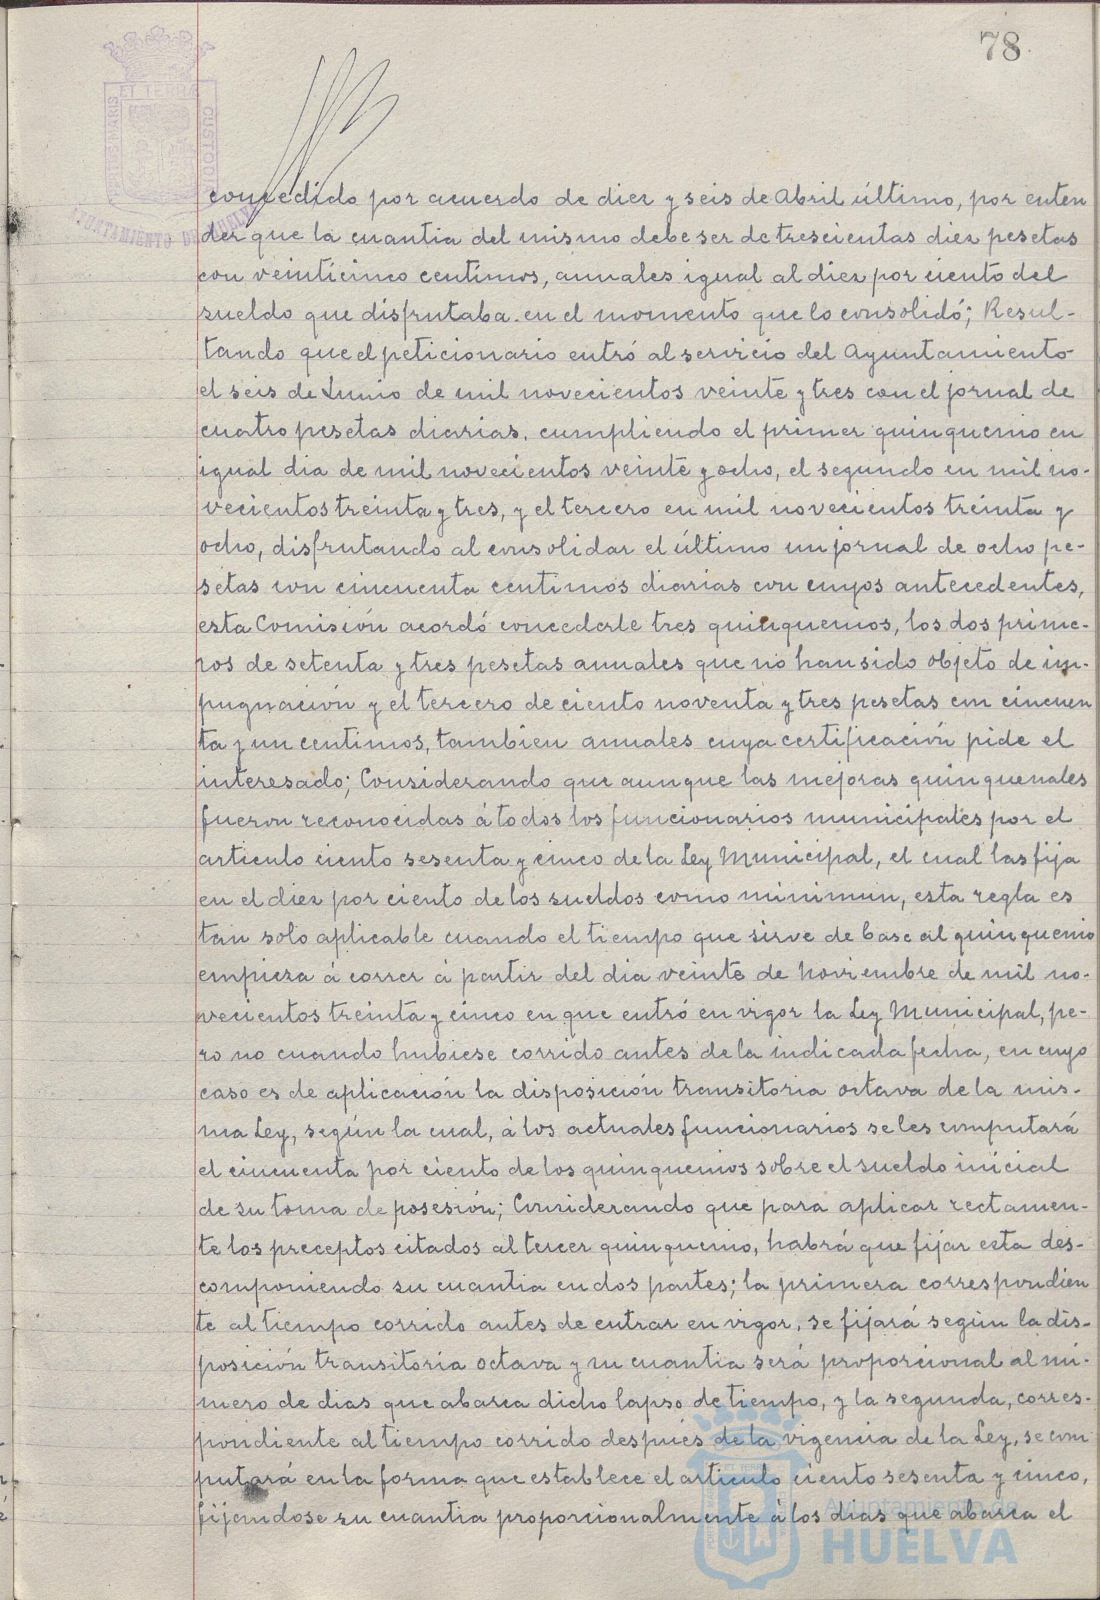 78
PORTUS MARIS ET TERRAE CUSTODIA
AYUNTAMIENTO DE HUELVA
concedido por acuerdo de diez y seis de Abril último, por enten
der que la cuantia del mismo debe ser de trescientas diez pesetas
con veinticinco centimos, anuales igual al diez por ciento del
sueldo que disfrutaba en el momento que lo consolidó; Resul-
tando que el peticionario entró al servicio del Ayuntamiento
el seis de Junio de mil novecientos veinte y tres con el jornal de
cuatro pesetas diarias, cumpliendo el primer quinquenio en
igual dia de mil novecientos veinte y ocho, el segundo en mil no-
vecientos treinta y tres, y el tercero en mil novecientos treinta y
ocho, disfrutando al consolidar el último un jornal de ocho pe-
setas con cincuenta centimos diarias con cuyos antecedentes,
esta Comisión acordó concederle tres quinquenios, los dos prime-
ros de setenta y tres pesetas anuales que no han sido objeto de im-
pugnación y el tercero de ciento noventa y tres pesetas con cincuen
ta y un centimos, tambien anuales cuya certificación pide el
interesado; Considerando que aunque las mejoras quinquenales
fueron reconocidas á todos los funcionarios municipales por el
articulo ciento sesenta y cinco de la Ley Municipal, el cual las fija
en el diez por ciento de los sueldos como minimun, esta regla es
tan solo aplicable cuando el tiempo que sirve de base al quinquenio
empieza á correr á partir del dia veinte de Noviembre de mil no-
vecientos treinta y cinco en que entró en vigor la Ley Municipal, pe-
ro no cuando hubiese corrido antes de la indicada fecha, en cuyo
caso es de aplicación la disposición transitoria octava de la mis-
ma Ley, según la cual, á los actuales funcionarios se les computará
el cincuenta por ciento de los quinquenios sobre el sueldo inicial
de su toma de posesión; Considerando que para aplicar rectamen-
te los preceptos citados al tercer quinquenio, habrá que fijar esta des-
componiendo su cuantia en dos partes; la primera correspondien
te al tiempo corrido antes de entrar en vigor, se fijará según la dis-
posición transitoria octava y su cuantia será proporcional al nú-
mero de dias que abarca dicho lapso de tiempo, y la segunda, corres-
pondiente al tiempo corrido después de la vigencia de la Ley, se com
putará en la forma que establece el articulo ciento sesenta y cinco,
fijandose su cuantia proporcionalmente á los dias que abarca el
Ayuntamiento de
HUELVA